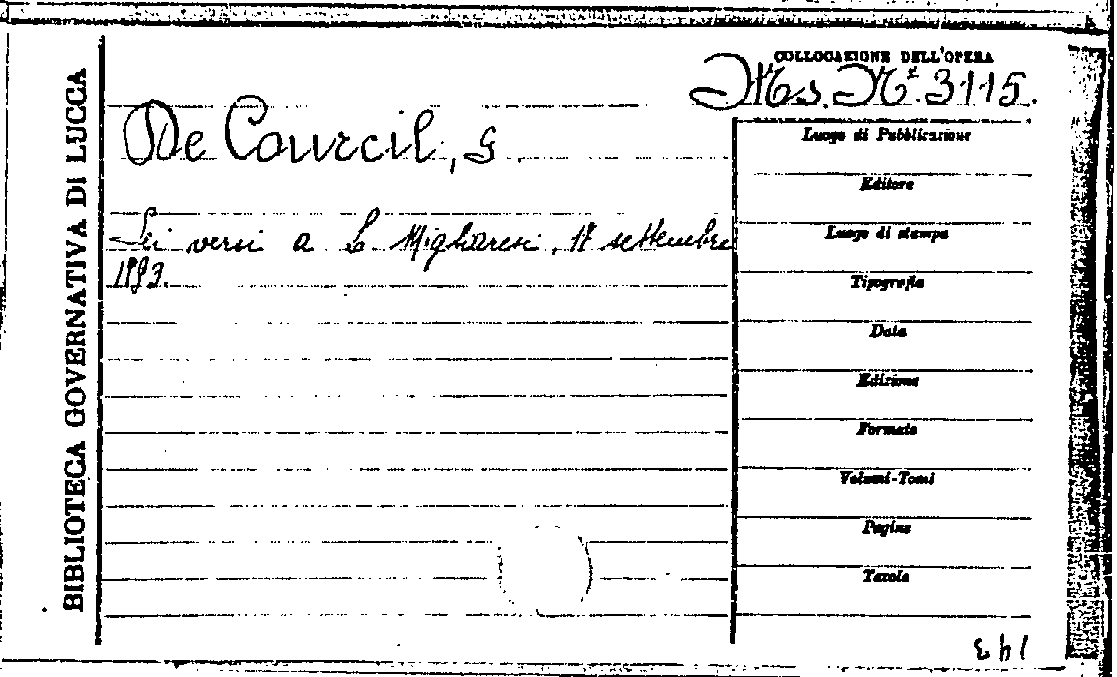 BIBLIOTECA GOVERNATIVA DI LUCCA
COLLOCAZIONE DELL'OPERA
Ms. Nº 3115.
De Courcil, G
Sei versi a L. Migliaresi, 18 settembre
1893.
Luogo di Pubblicazione
Editore
Luogo di stampa
Tipografia
Data
Edizione
Formato
Volumi-Tomi
Pagine
Tavole
143